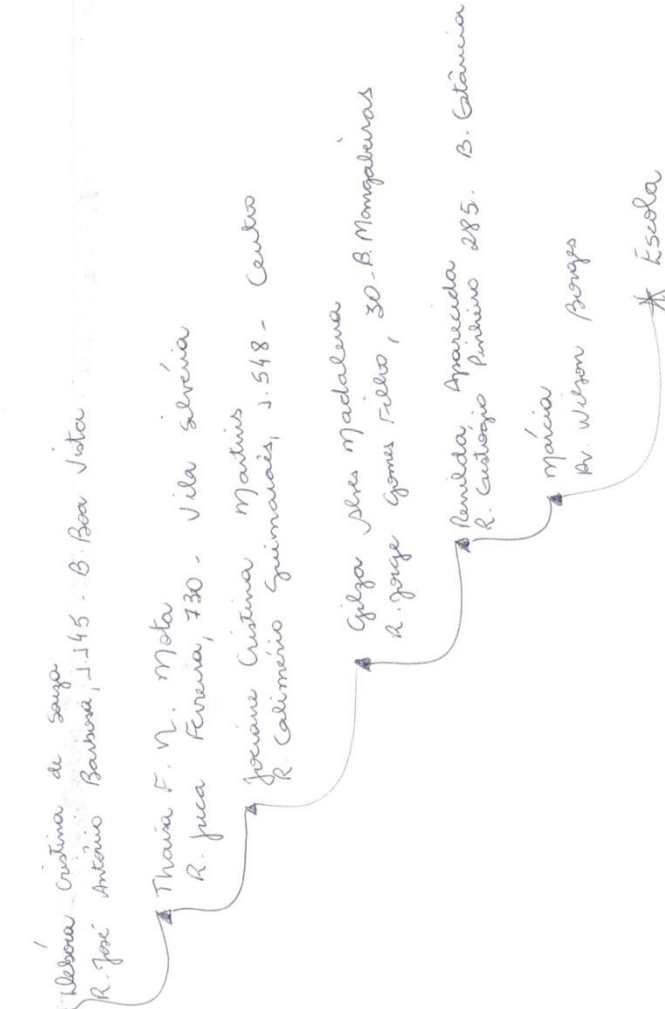 Débora Cristina de Souza
R. José Antônio Barbosa, 1.145 - B. Boa Vista
Thaisa F. N. Mota
R. Juca Ferreira, 730 - Vila Silvéria
Jociane Cristina Martins
R. Calimério Guimarães, 1.548 - Centro
Gilza Alves Madalena
R. Jorge Gomes Filho, 30 - B. Mangabeiras
Renilda Aparecida
R. Custógio Pinheiro 285. B. Estância
Márcia
Av. Wilson Borges
Escola